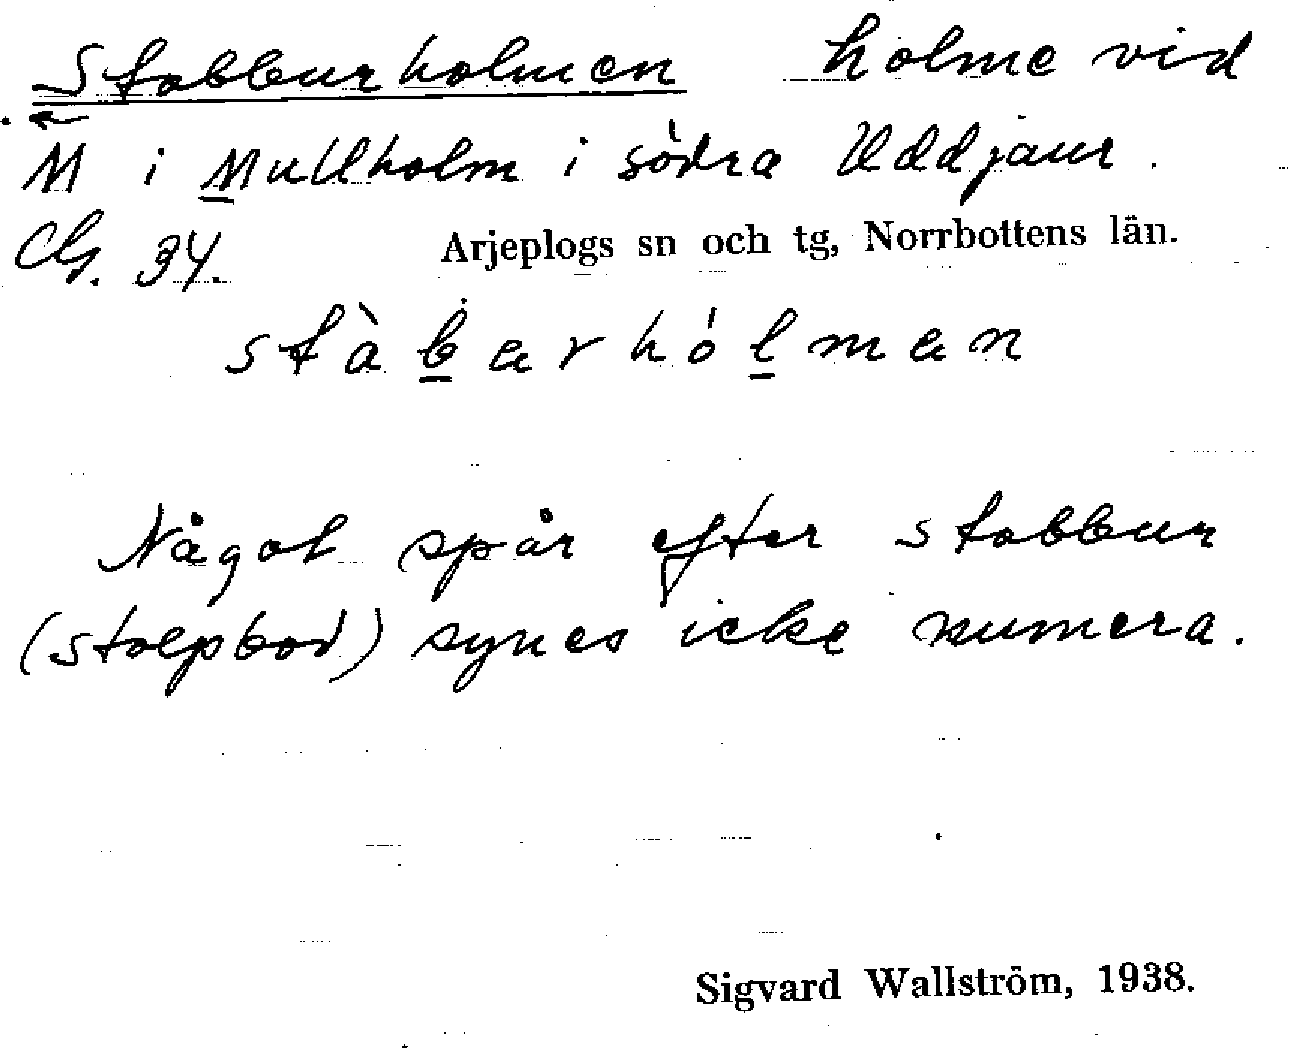 Stabburholmen holme vid
M i Mullholm i södra Uddjaur.
Cg. 34. Arjeplogs sn och tg, Norrbottens län.
stàbarhólman
Något spår efter stabbur
(stolpbod) synes icke numera.
Sigvard Wallström, 1938.